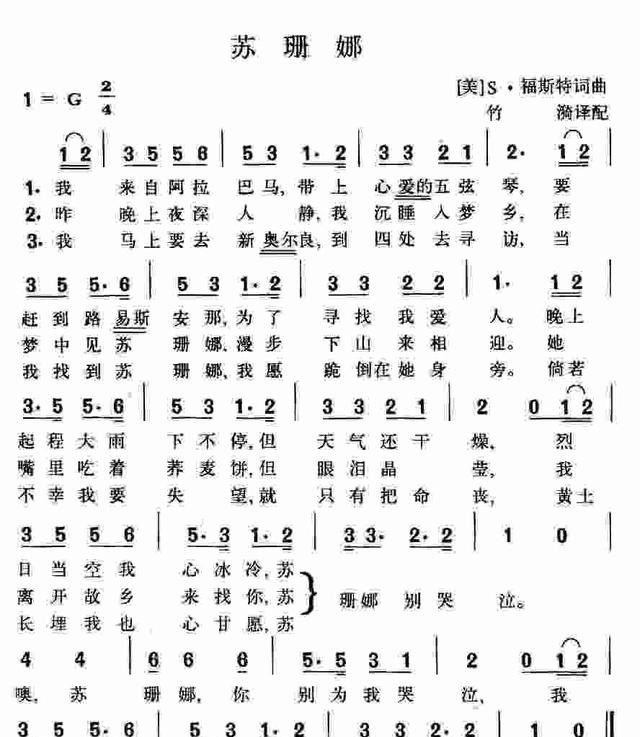 苏珊娜
1 = G 2/4
[美]S·福斯特词曲
竹 漪译配
1 2 | 3 5 5 6 | 5 3 1· 2 | 3 3 2 1 | 2· 1 2 |
1. 我 来自阿拉 巴马, 带上 心爱的五弦 琴, 要
2. 昨 晚上夜深 人静, 我 沉睡入梦 乡, 在
3. 我 马上要去 新奥尔良, 到 四处去寻 访, 当
3 5 5· 6 | 5 3 1· 2 | 3 3 2 2 | 1· 1 2 |
赶到路易斯 安那, 为了 寻找我爱 人。 晚上
梦中见苏 珊娜、漫步 下山来相 迎。 她
我找到苏 珊娜, 我愿 跪倒在她身 旁。 倘若
3· 5 5· 6 | 5 3 1· 2 | 3 3 2 1 | 2 0 1 2 |
起程大雨 下不停, 但 天气还干 燥, 烈
嘴里吃着 荞麦饼, 但 眼泪晶 莹, 我
不幸我要 失望, 就 只有把命 丧, 黄土
3 5 5 6 | 5· 3 1· 2 | 3 3· 2· 2 | 1 0 |
日当空我 心冰冷, 苏
离开故乡 来找你, 苏 } 珊娜 别哭 泣。
长埋我也 心甘愿, 苏
4 4 | 6 6 6 | 5· 5 3 1 | 2 0 1 2 |
噢, 苏 珊娜, 你 别为我哭 泣, 我
3 5 5· 6 | 5 3 1· 2 | 3 3 2· 2 | 1 0 ‖